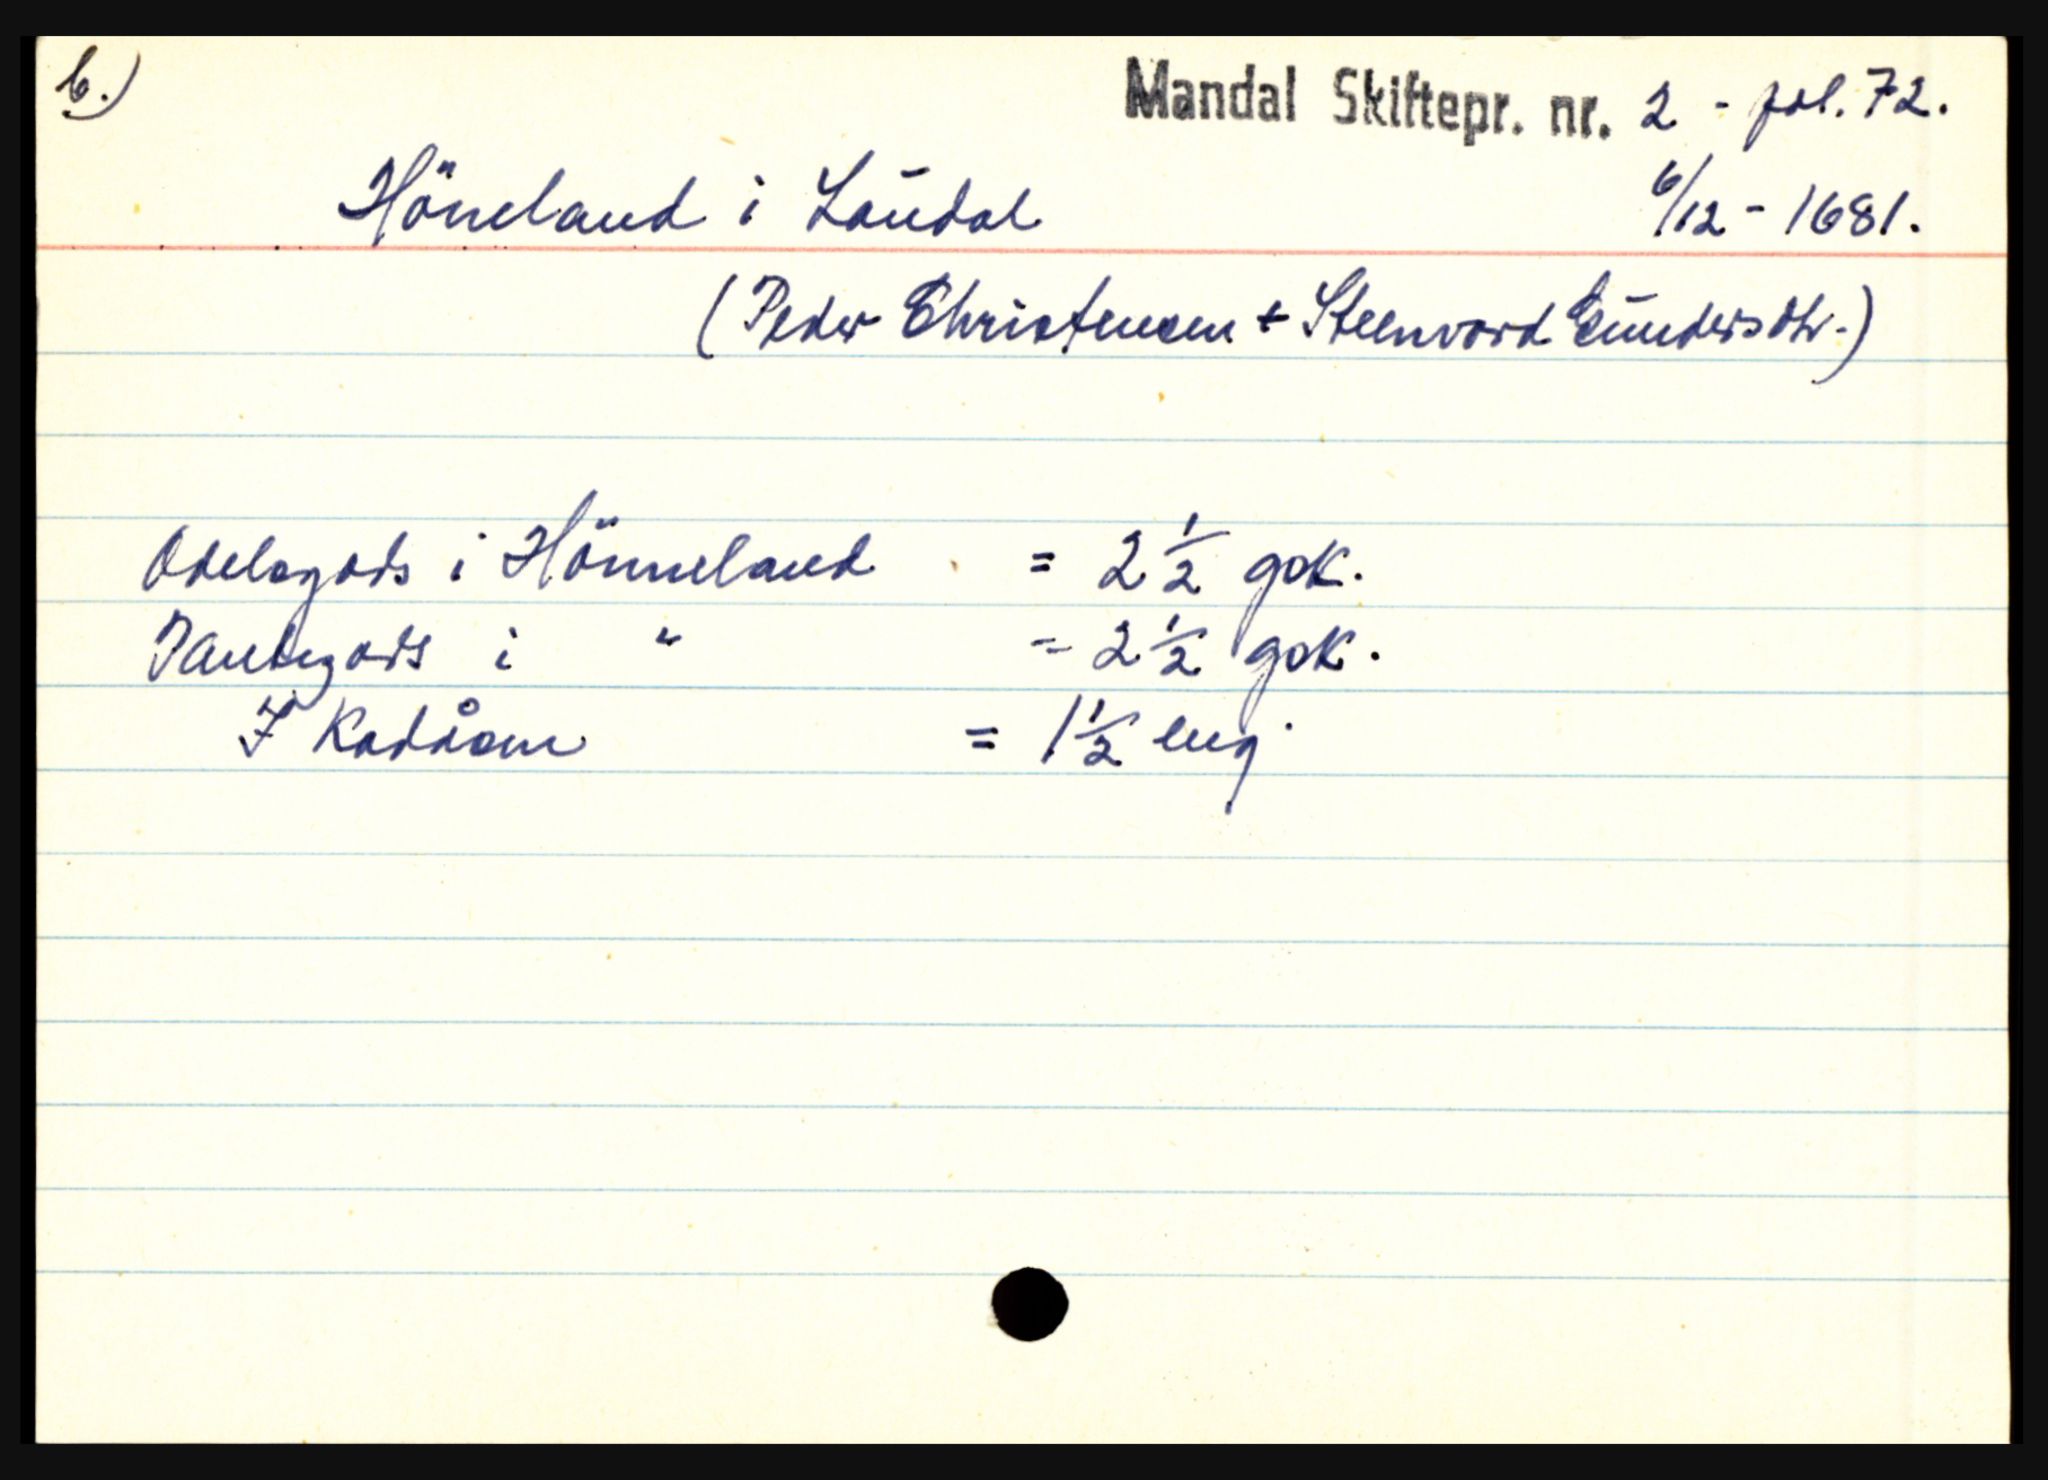 b.)
Mandal Skiftepr. nr. 2 - fol. 72.
Höneland i Laudal
6/12 - 1681.
(Peder Christensen + Steenvord Gundersdtr.)
Odelsgods i Hönneland = 2 1/2 gdk.
Pantegods i " = 2 1/2 gdk.
I = 1 1/2 eng.